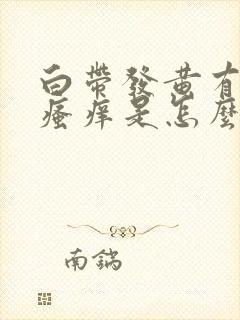 白带發黄有
瘙痒是怎麼
南鍋